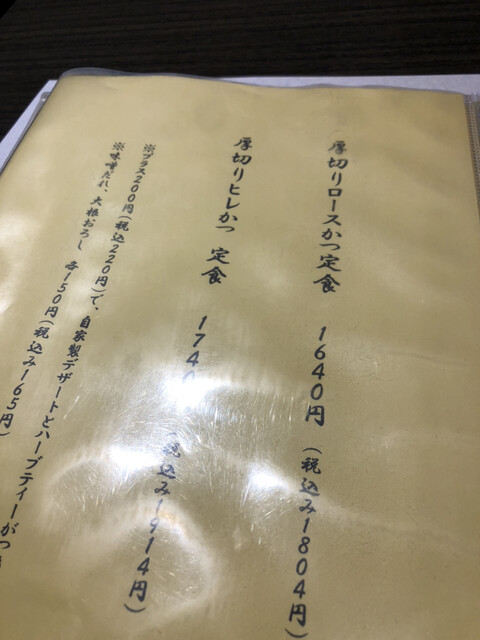 厚切りロースかつ定食 1640円 (税込み1804円)
厚切りヒレかつ 定食 1740 (税込み1914円)
※プラス200円(税込220円)で、自家製デザートとハーブティーがつ
※味噌だれ、大根おろし 各150円(税込み165円)